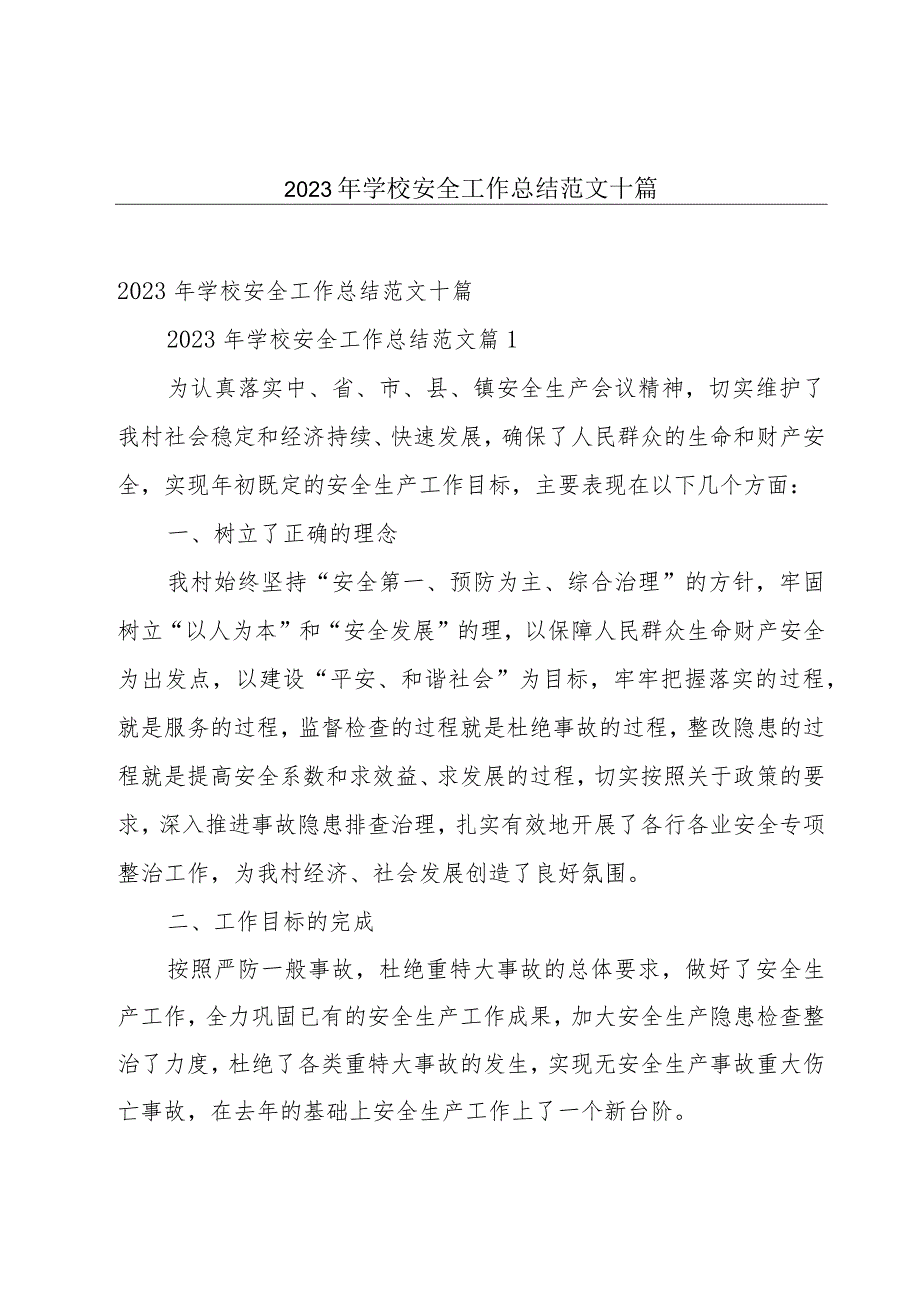 2023年学校安全工作总结范文十篇
2023 年学校安全工作总结范文十篇
2023 年学校安全工作总结范文篇 1
为认真落实中、省、市、县、镇安全生产会议精神，切实维护了
我村社会稳定和经济持续、快速发展，确保了人民群众的生命和财产安
全，实现年初既定的安全生产工作目标，主要表现在以下几个方面：
一、树立了正确的理念
我村始终坚持“安全第一、预防为主、综合治理”的方针，牢固
树立“以人为本”和“安全发展”的理，以保障人民群众生命财产安全
为出发点，以建设“平安、和谐社会”为目标，牢牢把握落实的过程，
就是服务的过程，监督检查的过程就是杜绝事故的过程，整改隐患的过
程就是提高安全系数和求效益、求发展的过程，切实按照关于政策的要
求，深入推进事故隐患排查治理，扎实有效地开展了各行各业安全专项
整治工作，为我村经济、社会发展创造了良好氛围。
二、工作目标的完成
按照严防一般事故，杜绝重特大事故的总体要求，做好了安全生
产工作，全力巩固已有的安全生产工作成果，加大安全生产隐患检查整
治了力度，杜绝了各类重特大事故的发生，实现无安全生产事故重大伤
亡事故，在去年的基础上安全生产工作上了一个新台阶。